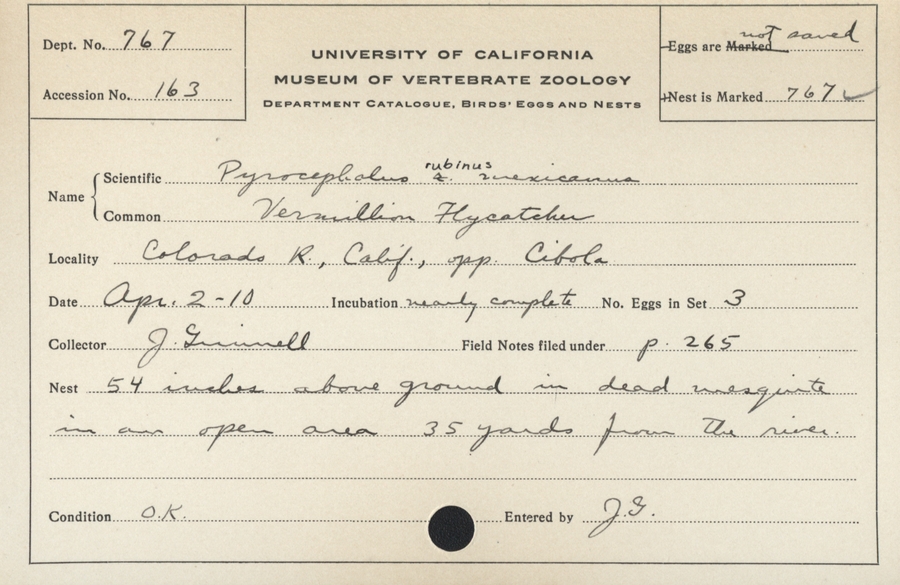 Dept. No. 767
Accession No. 163
UNIVERSITY OF CALIFORNIA
MUSEUM OF VERTEBRATE ZOOLOGY
DEPARTMENT CATALOGUE, BIRDS' EGGS AND NESTS
Eggs are Marked not saved
Nest is Marked 767
Name
Scientific Pyrocephalus r. rubinus mexicanus
Common Vermillion Flycatcher
Locality Colorado R., Calif., opp. Cibola
Date Apr. 2-10 Incubation nearly complete No. Eggs in Set 3
Collector J. Grinnell Field Notes filed under p. 265
Nest 54 inches above ground in dead mesquite
in an open area 35 yards from the river.
Condition O.K. Entered by J.G.